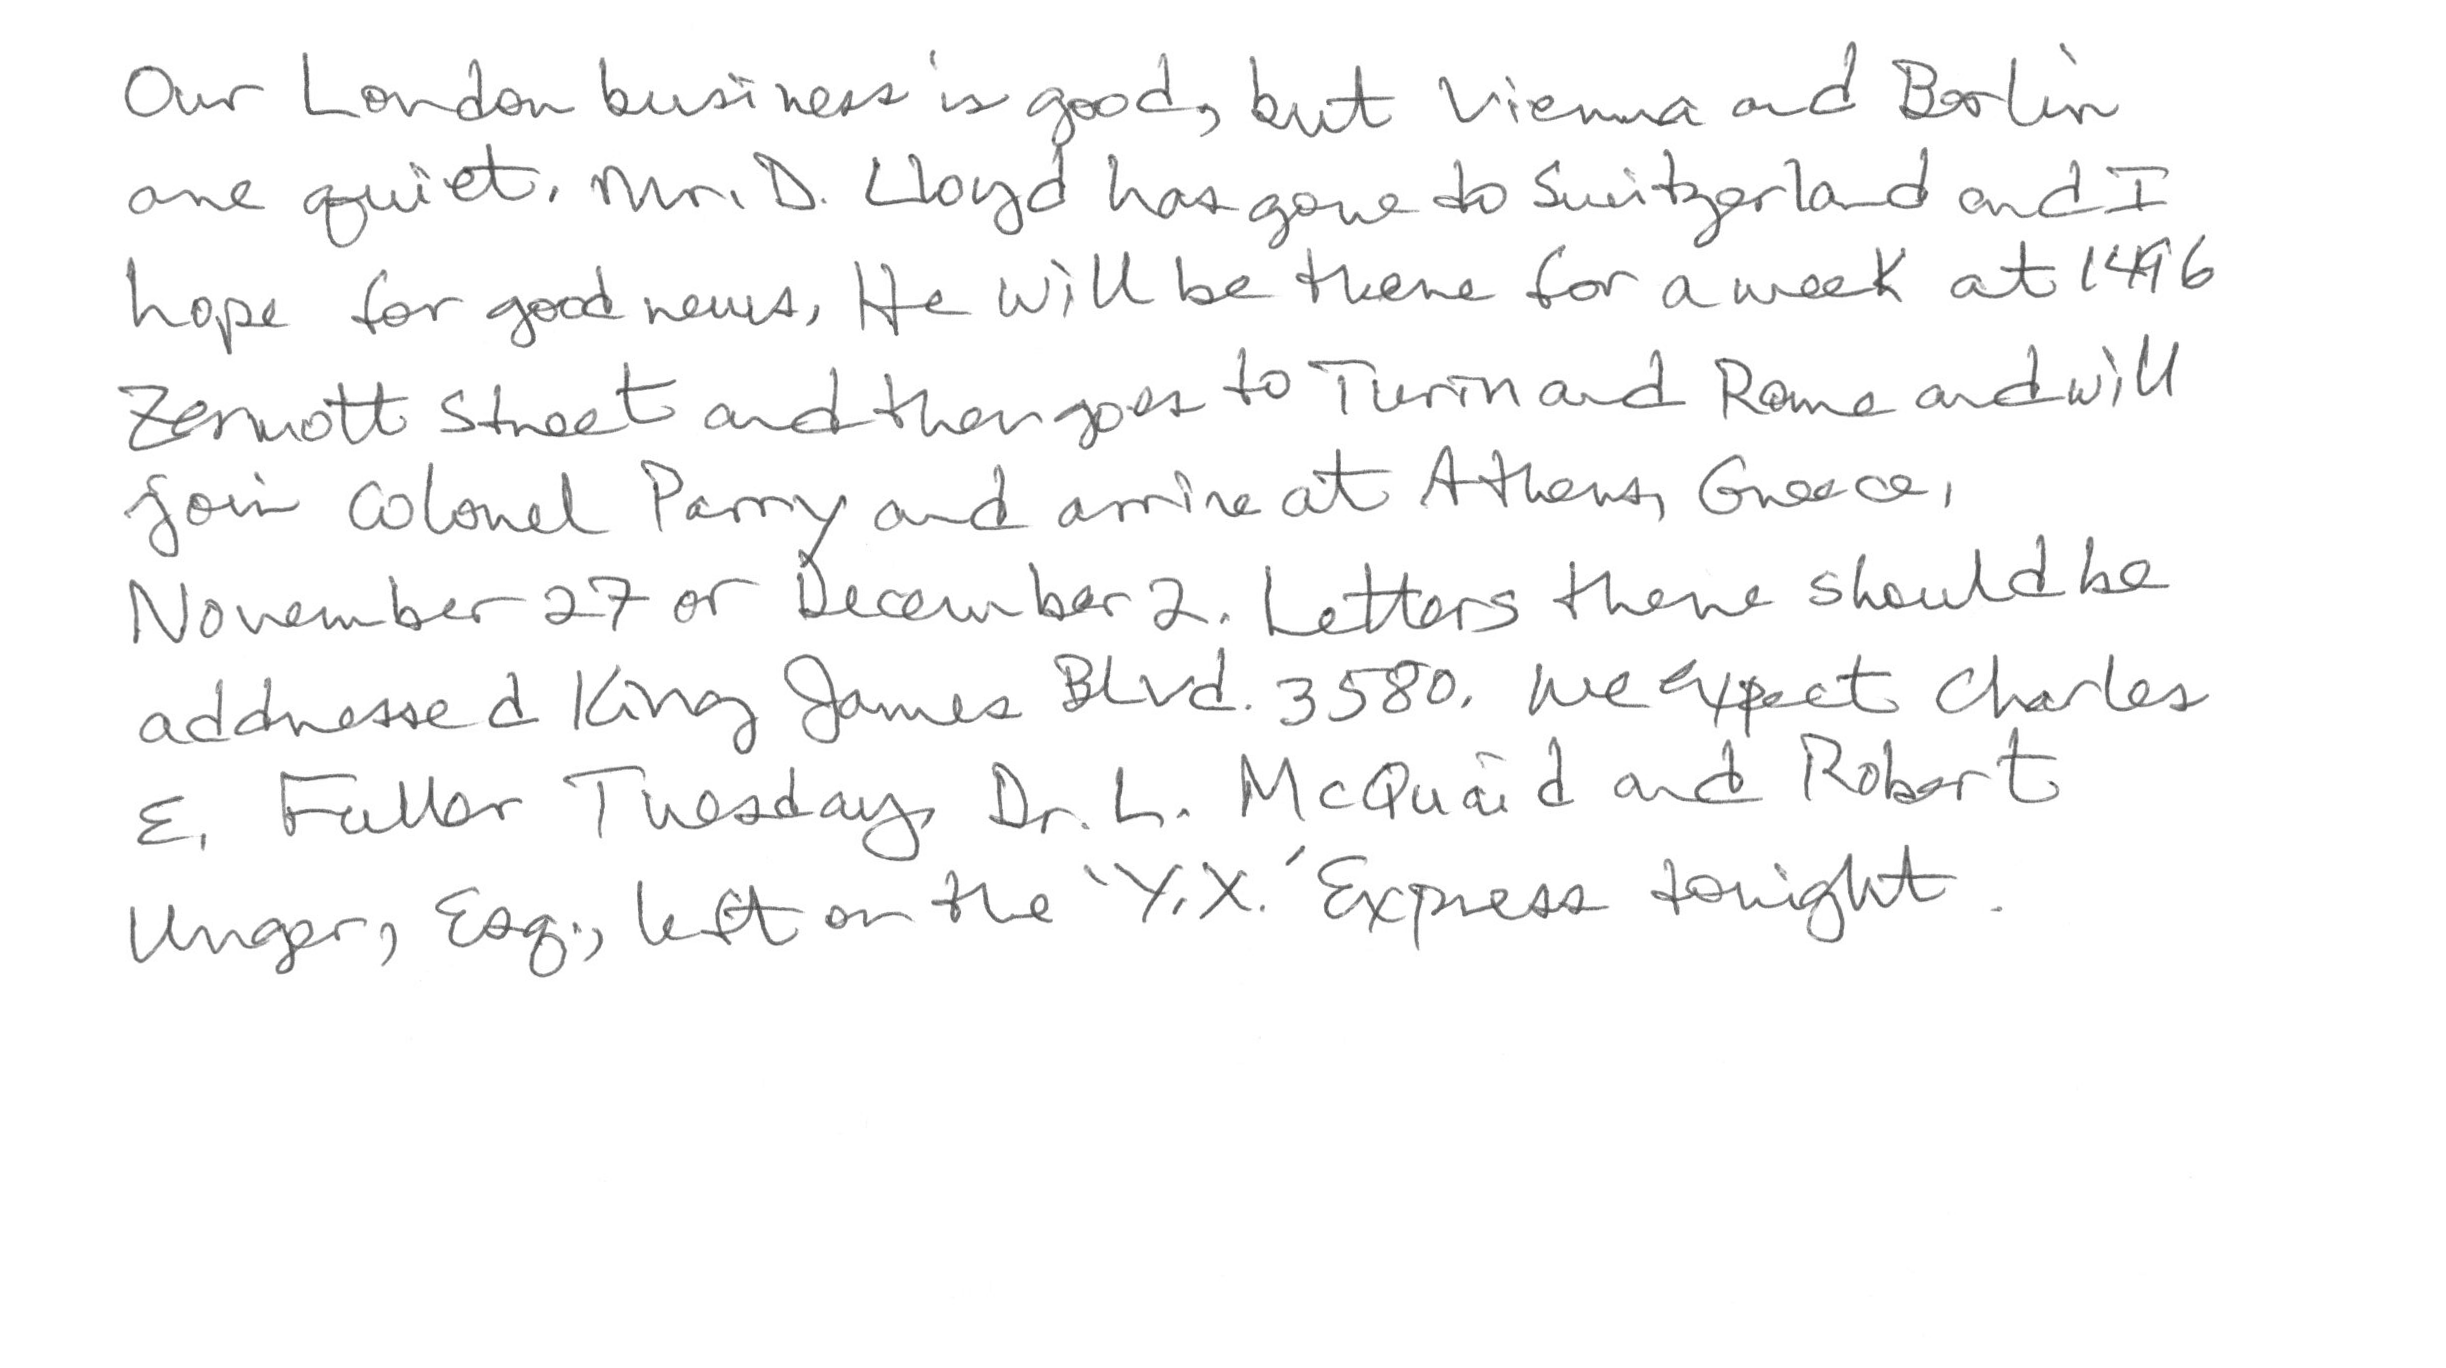 Our London business is good, but Vienna and Berlin
are quiet. Mr. D. Lloyd has gone to Switzerland and I
hope for good news. He will be there for a week at 1496
Zermott Street and then goes to Turin and Rome and will
join Colonel Parry and arrive at Athens, Greece,
November 27 or December 2. Letters there should be
addressed King James Blvd. 3580. We expect Charles
E. Fuller Tuesday. Dr. L. McQuaid and Robert
Unger, Esq., left on the 'Y.X.' Express tonight.